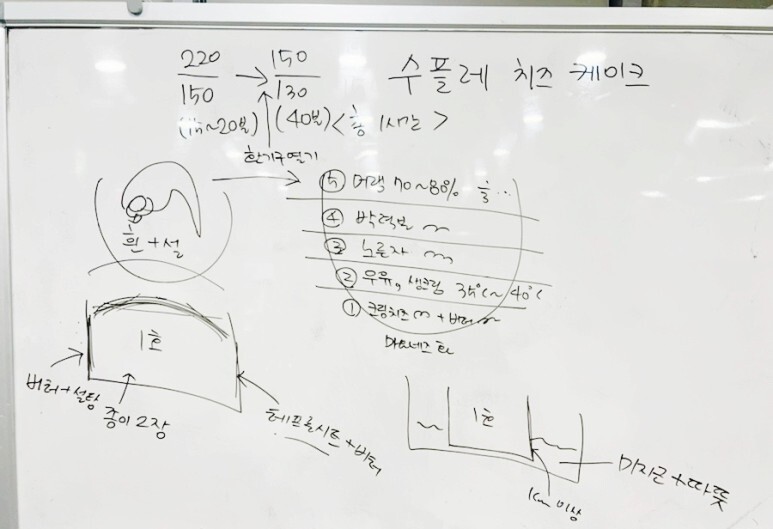 220/150 → 150/130 수플레 치즈 케이크
(15~20분) (40분) <총 1시간>
환기구열기
⑤ 머랭 70~80%
④ 박력분
③ 노른자
② 우유, 생크림 35℃~40℃
① 크림치즈 + 버터
마요네즈
흰+설
1호
버터+설탕
종이 2장
테프론시트+버터
1호
미지근+따뜻
1cm 이상